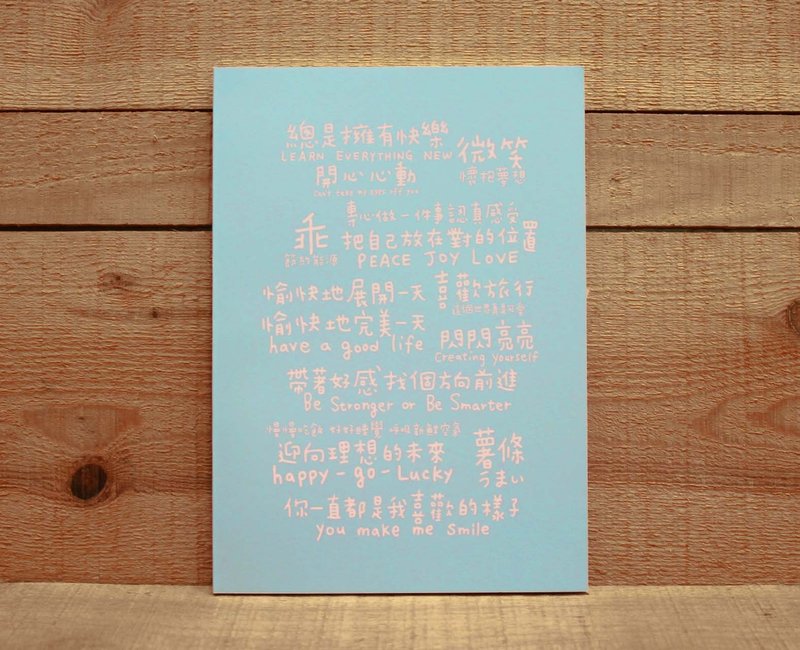 總是擁有快樂
LEARN EVERYTHING NEW
微笑
開心心動
懷抱夢想
can't take my eyes off you
專心做一件事認真感受
乖
把自己放在對的位置
節約能源
PEACE JOY LOVE
愉快地展開一天
喜歡旅行
愉快地完美一天
have a good life
閃閃亮亮
Creating yourself
帶著好感找個方向前進
Be Stronger or Be Smarter
慢慢吃飯 好好睡覺 呼吸新鮮空氣
迎向理想的未來
薯條
happy-go-Lucky
うまい
你一直都是我喜歡的樣子
you make me smile